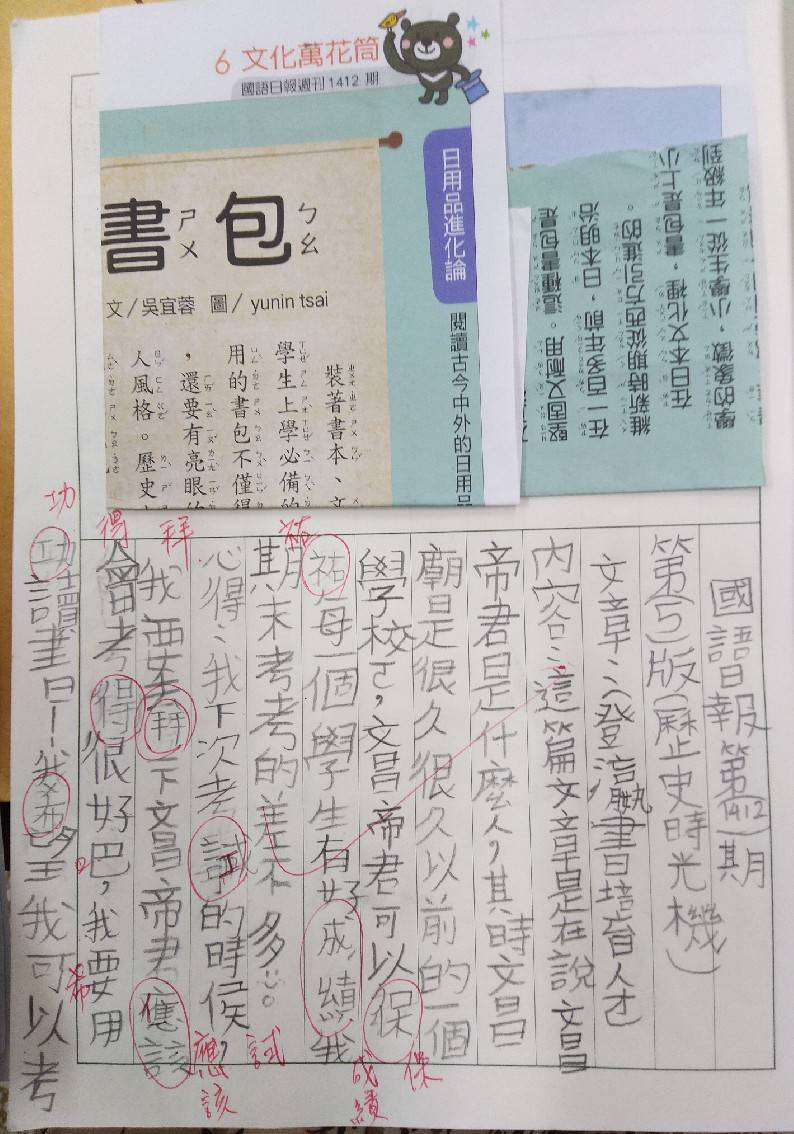 6 文化萬花筒
國語日報週刊1412 期
日用品進化論
閱讀古今中外的日用品
書 ㄕㄨ 包 ㄅㄠ
文/吳宜蓉 圖/ yunin tsai
裝著書本、文
學生上學必備的
用的書包不僅得
，還要有亮眼的
人風格。歷史
學的象徵，小學生從一年級到
在日本文化裡，書包是上小
維新時期從西方引進的。
在一百多年前，日本明治
堅固又耐用。這種書包是
國語日報第1412期
第(5)版(歷史時光機)
文章:(登瀛書日培育人才)
內容:這篇文章是在說文昌
帝君是什麼人，其時文昌
廟是很久很久以前的一個
學校ㄛ，文昌帝君可以保
祐每一個學生有好成績我
期末考考的差不多。
心得:我下次考試的時候，
我要去拜一下文昌帝君應該
會考得很好巴，我要用
功讀書!我希望我可以考
功
得
拜
祐
希
應該
試
成績
保